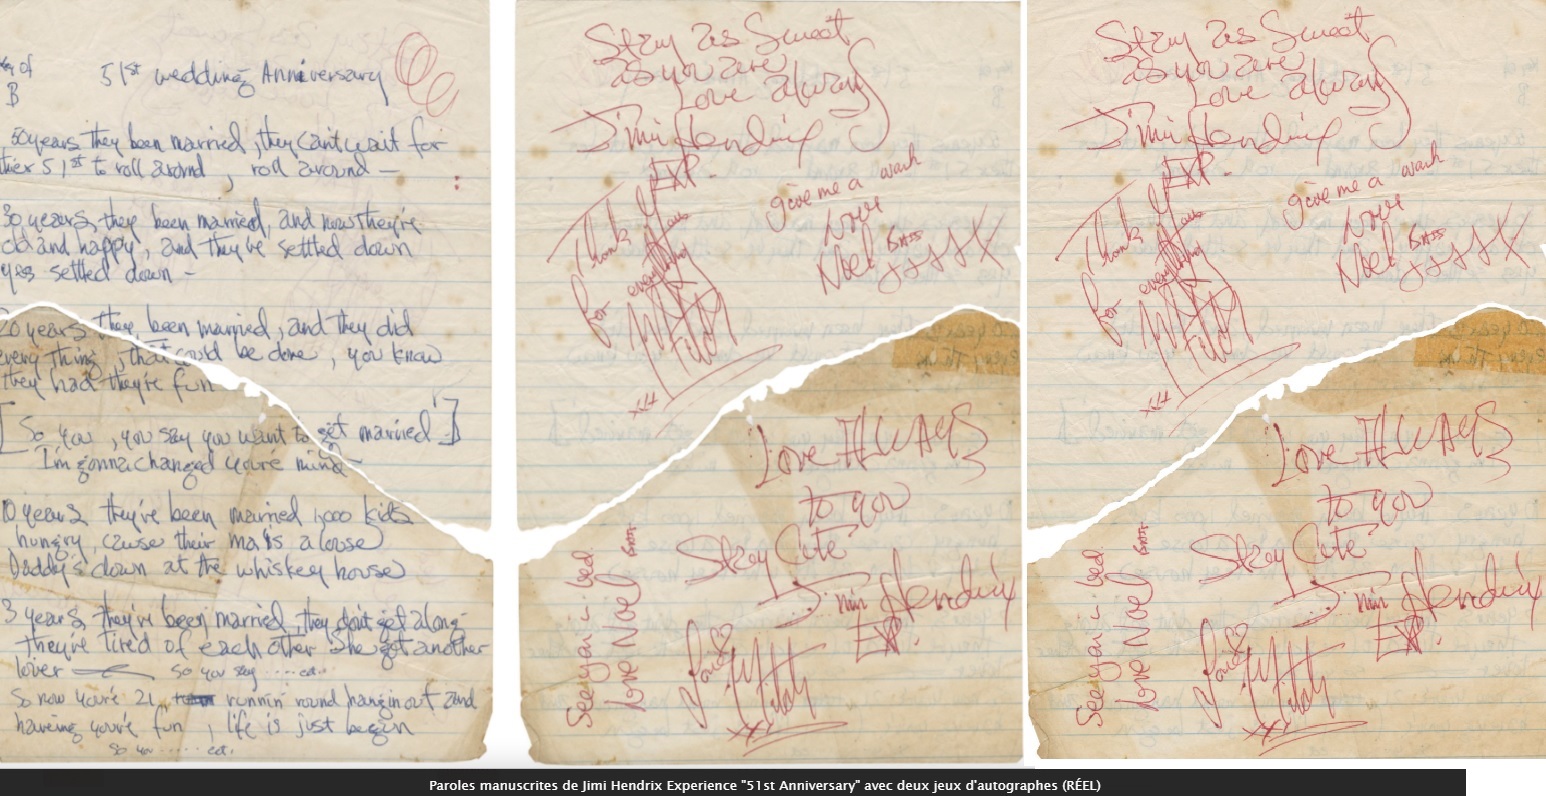 key of
B
51st wedding Anniversary
50 years they been married, they can't wait for
thier 51st to roll around, roll around —
30 years, they been married, and now they're
old and happy, and they're settled down
yes settled down -
20 years, they, been married, and they did
every thing, that could be done, you know
they had they're fun
[So you, you say you want to get married]
I'm gonna changed you're mind -
10 years they're been married 1,000 kids
hungry, cause their ma's a louse
Daddy's down at the whiskey house
3 years, they've been married, they don't get along
They're tired of each other she got another
lover — so you say ..... ect..
So now you're 21, runnin' round hangin out and
haveing you're fun, life is just begin
so you ..... ect.
Stay as Sweet
as you are
Love always
Jimi Hendrix
EXP.
Thank you
for everything
Mitch
xxx
give me a
Love
Noel BASS
Love ALWAYS
to you
Stay Cute
Jimi Hendrix
EXP.
See you in bed.
Love Noel BASS
Love
Mitch
xxx
Stay as Sweet
as you are
Love always
Jimi Hendrix
EXP.
Thank you
for everything
Mitch
xxx
give me a
Love
Noel BASS
Love ALWAYS
to you
Stay Cute
Jimi Hendrix
EXP.
See you in bed.
Love Noel BASS
Love
Mitch
xxx
Paroles manuscrites de Jimi Hendrix Experience "51st Anniversary" avec deux jeux d'autographes (RÉEL)